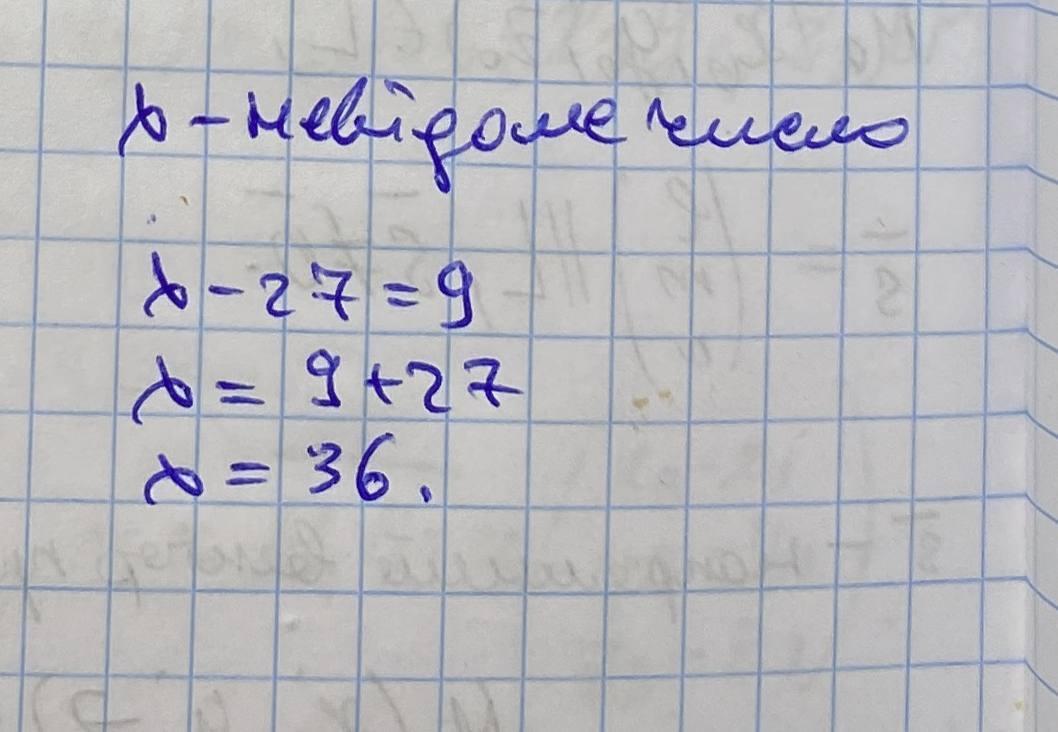 x - невідоме число
x - 27 = 9
x = 9 + 27
x = 36.